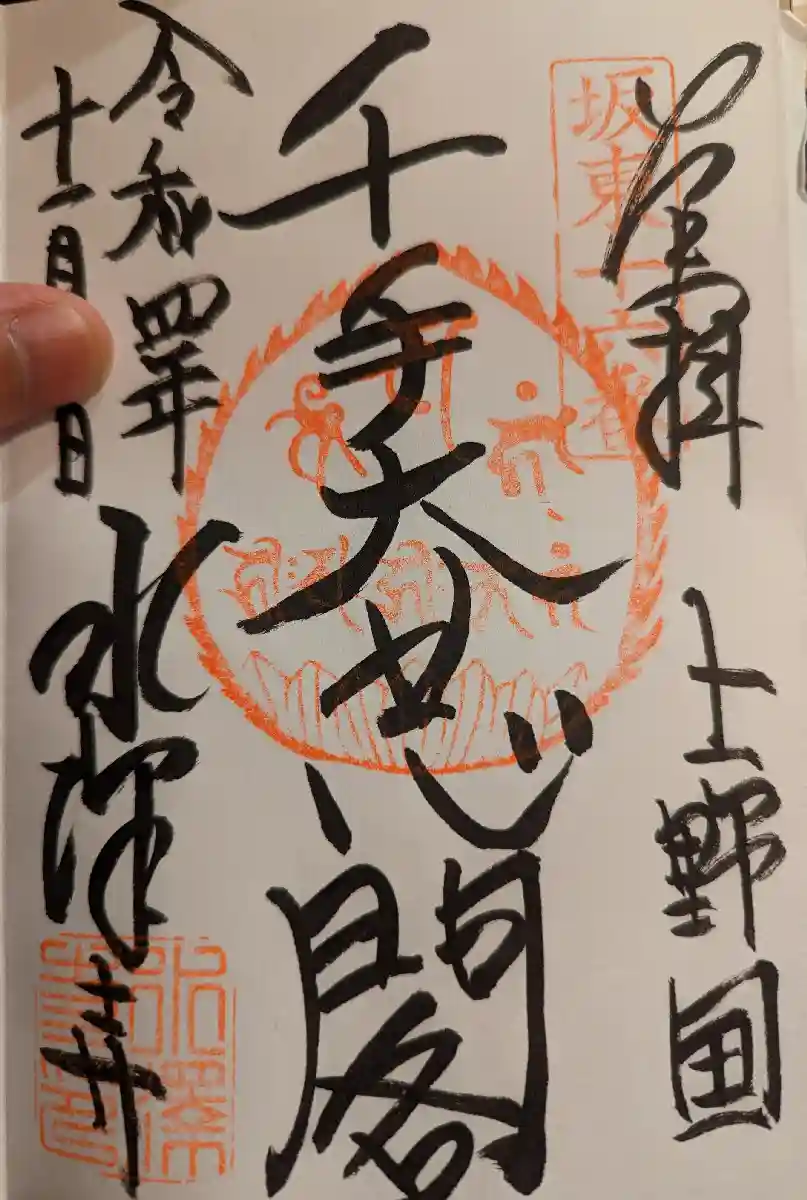 奉拝
上野國
坂東十六番
千手大悲閣
令和四年
十一月 日
水澤寺